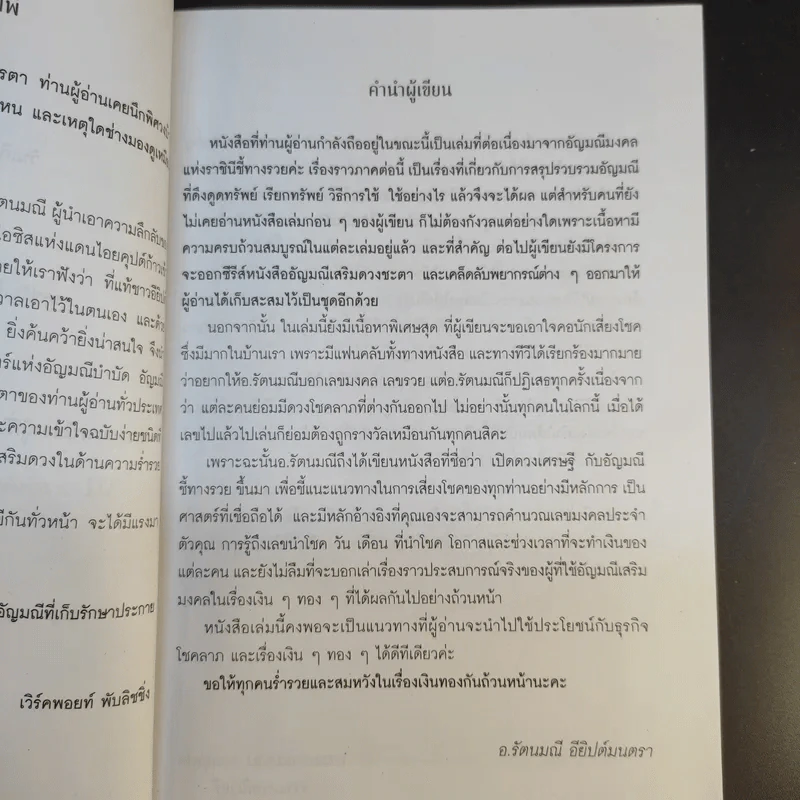 รตา ท่านผู้อ่านเคยนึกพิศวง
หน และเหตุใดช่างมองดูเหมือน
รัตนมณี ผู้นำเอาความลึกลับ
เอซิสแห่งแดนไอยคุปต์ก้าว
ายให้เราฟังว่า ที่แท้ชาวอียิปต์
วาลเอาไว้ในตนเอง และ
ยิ่งค้นคว้ายิ่งน่าสนใจ จึง
ร์แห่งอัญมณีบำบัด อัญมณี
ตาของท่านผู้อ่านทั่วประเทศ
ะความเข้าใจฉบับง่ายชนิด
สริมดวงในด้านความร่ำรวย
ีกันทั่วหน้า จะได้มีแรงมา
อัญมณีที่เก็บรักษาประกาย
เวิร์คพอยท์ พับลิชชิ่ง
คำนำผู้เขียน
หนังสือที่ท่านผู้อ่านกำลังถืออยู่ในขณะนี้เป็นเล่มที่ต่อเนื่องมาจากอัญมณีมงคล
แห่งราชินีชี้ทางรวยค่ะ เรื่องราวภาคต่อนี้ เป็นเรื่องที่เกี่ยวกับการสรุปรวบรวมอัญมณี
ที่ดึงดูดทรัพย์ เรียกทรัพย์ วิธีการใช้ ใช้อย่างไร แล้วจึงจะได้ผล แต่สำหรับคนที่ยัง
ไม่เคยอ่านหนังสือเล่มก่อน ๆ ของผู้เขียน ก็ไม่ต้องกังวลแต่อย่างใดเพราะเนื้อหามี
ความครบถ้วนสมบูรณ์ในแต่ละเล่มอยู่แล้ว และที่สำคัญ ต่อไปผู้เขียนยังมีโครงการ
จะออกซีรีส์หนังสืออัญมณีเสริมดวงชะตา และเคล็ดลับพยากรณ์ต่าง ๆ ออกมาให้
ผู้อ่านได้เก็บสะสมไว้เป็นชุดอีกด้วย
นอกจากนั้น ในเล่มนี้ยังมีเนื้อหาพิเศษสุด ที่ผู้เขียนจะขอเอาใจคอนักเสี่ยงโชค
ซึ่งมีมากในบ้านเรา เพราะมีแฟนคลับทั้งทางหนังสือ และทางทีวีได้เรียกร้องมากมาย
ว่าอยากให้อ.รัตนมณีบอกเลขมงคล เลขรวย แต่อ.รัตนมณีก็ปฏิเสธทุกครั้งเนื่องจาก
ว่า แต่ละคนย่อมมีดวงโชคลาภที่ต่างกันออกไป ไม่อย่างนั้นทุกคนในโลกนี้ เมื่อได้
เลขไปแล้วไปเล่นก็ย่อมต้องถูกรางวัลเหมือนกันทุกคนสิคะ
เพราะฉะนั้นอ.รัตนมณีถึงได้เขียนหนังสือที่ชื่อว่า เปิดดวงเศรษฐี กับอัญมณี
ชี้ทางรวย ขึ้นมา เพื่อชี้แนะแนวทางในการเสี่ยงโชคของทุกท่านอย่างมีหลักการ เป็น
ศาสตร์ที่เชื่อถือได้ และมีหลักอ้างอิงที่คุณเองจะสามารถคำนวณเลขมงคลประจำ
ตัวคุณ การรู้ถึงเลขนำโชค วัน เดือน ที่นำโชค โอกาสและช่วงเวลาที่จะทำเงินของ
แต่ละคน และยังไม่ลืมที่จะบอกเล่าเรื่องราวประสบการณ์จริงของผู้ที่ใช้อัญมณีเสริม
มงคลในเรื่องเงิน ๆ ทอง ๆ ที่ได้ผลกันไปอย่างถ้วนหน้า
หนังสือเล่มนี้คงพอจะเป็นแนวทางที่ผู้อ่านจะนำไปใช้ประโยชน์กับธุรกิจ
โชคลาภ และเรื่องเงิน ๆ ทอง ๆ ได้ดีทีเดียวค่ะ
ขอให้ทุกคนร่ำรวยและสมหวังในเรื่องเงินทองกันถ้วนหน้านะคะ
อ.รัตนมณี อียิปต์มนตรา